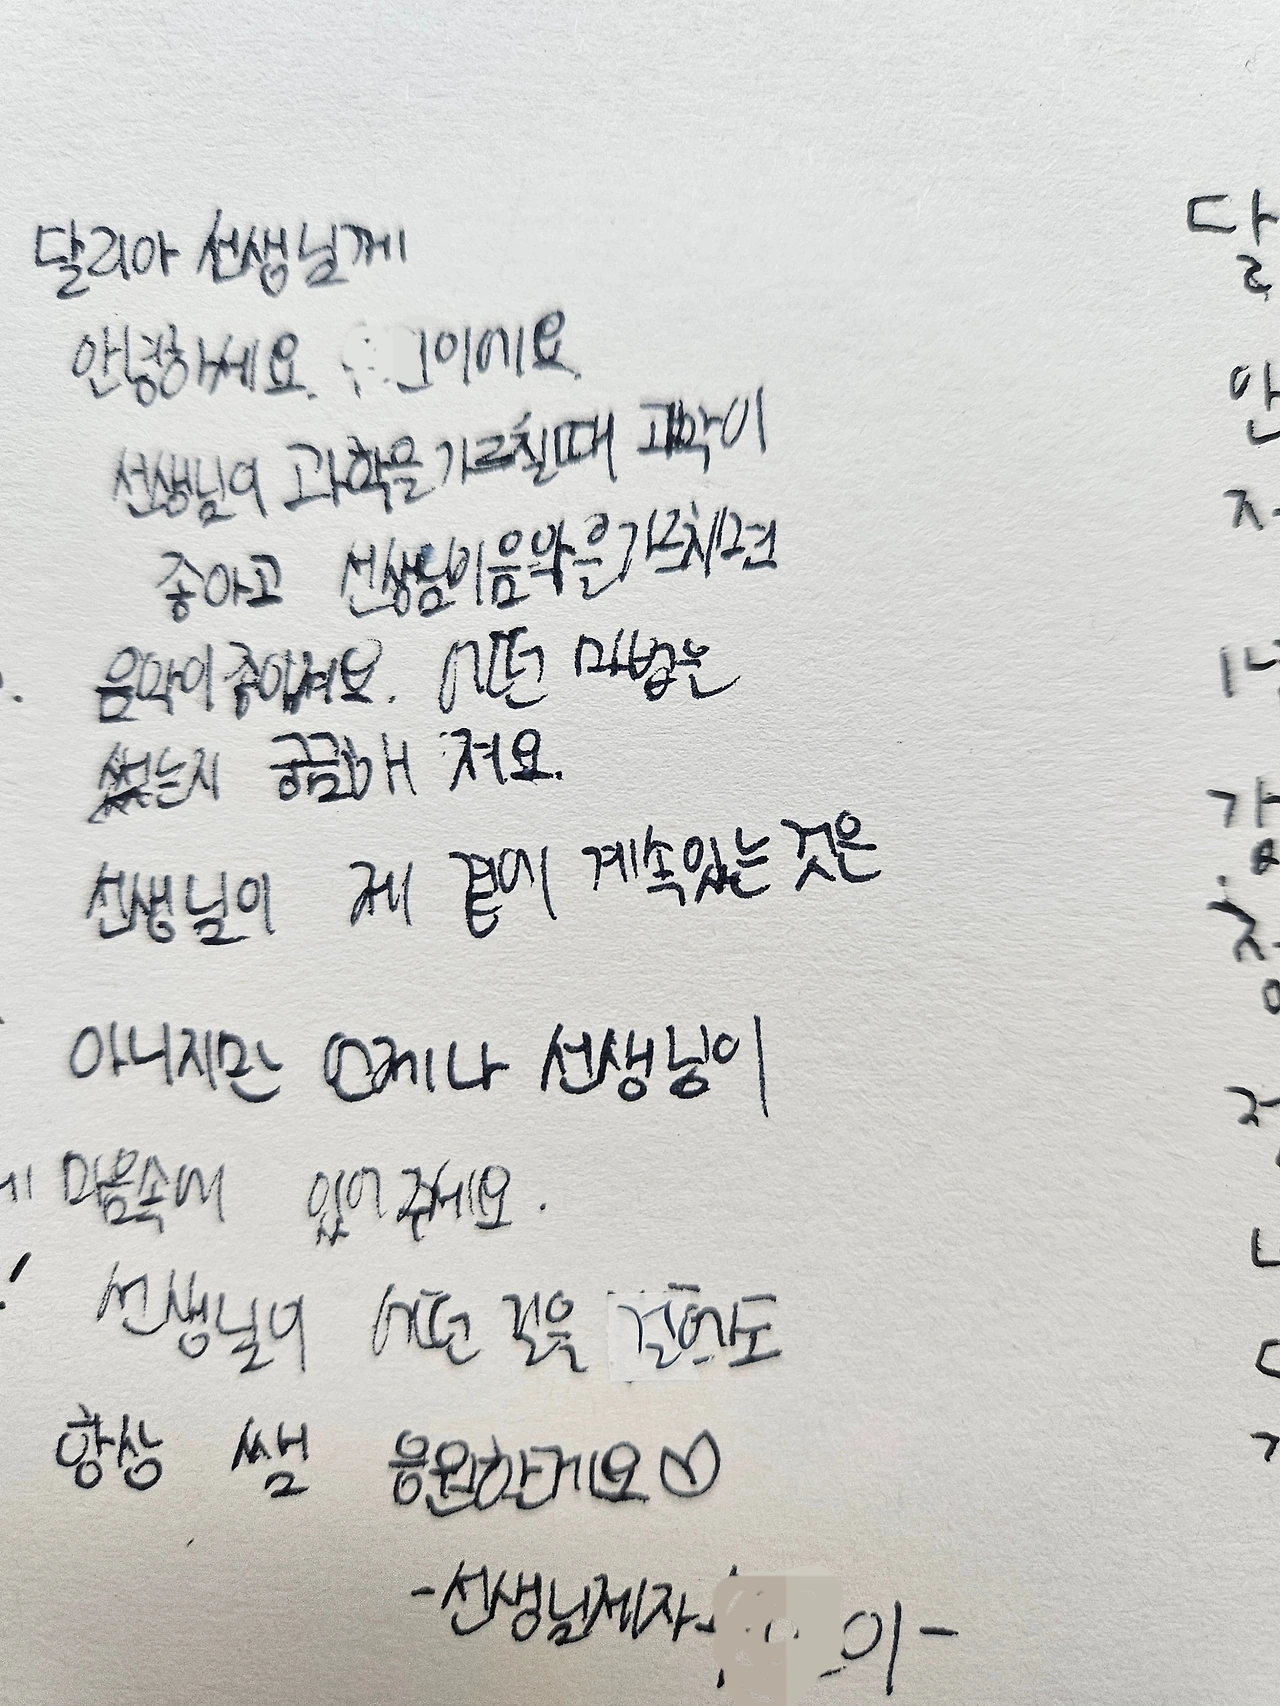 달리아 선생님께
안녕하세요. 이에요.
선생님이 과학을 가르칠때 과학이
좋아고 선생님이 음악은 가르치면
음악이 좋아져요. 어떤 마법는
썼는지 궁금해 져요.
선생님이 제 곁에 계속있는 것은
아니지만 언제나 선생닝이
제 마음속에 있어 주세요.
선생님이 어떤 길을 걸어도
항상 쌤 응원할게요♡
-선생님제자 이-